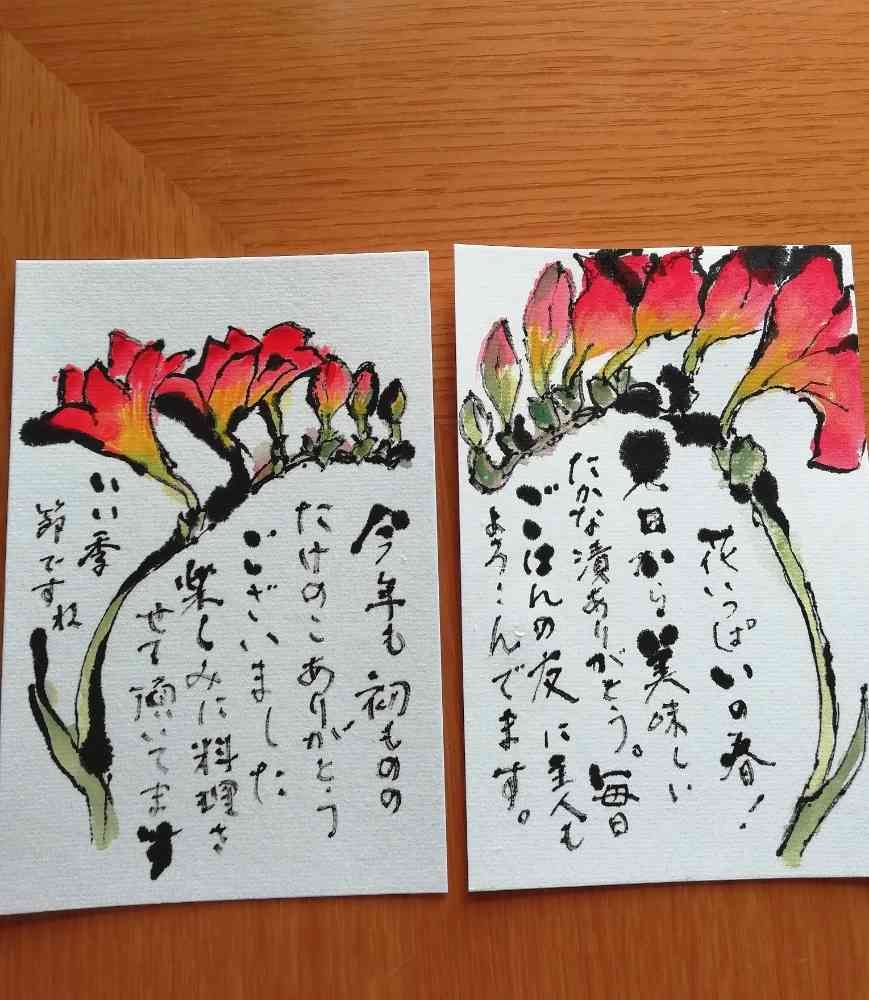 今年も初ものの
たけのこありがとう
ございました
楽しみに料理さ
せて頂いてます
いい季
節ですね
花いっぱいの春!
先日から美味しい
たかな漬ありがとう。毎日
ごはんの友に主人も
よろこんでます。